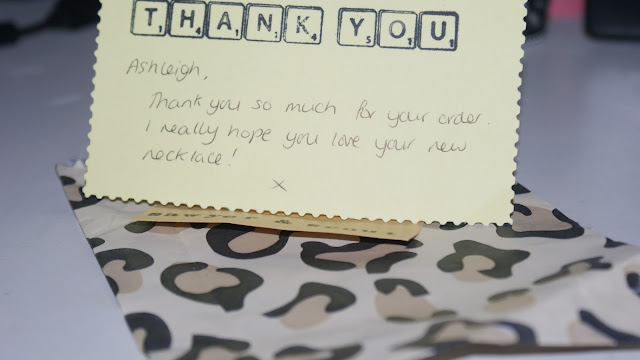 THANK YOU
Ashleigh,
Thank you so much for your order.
I really hope you love your new
necklace!
x
Sawyer & Scout